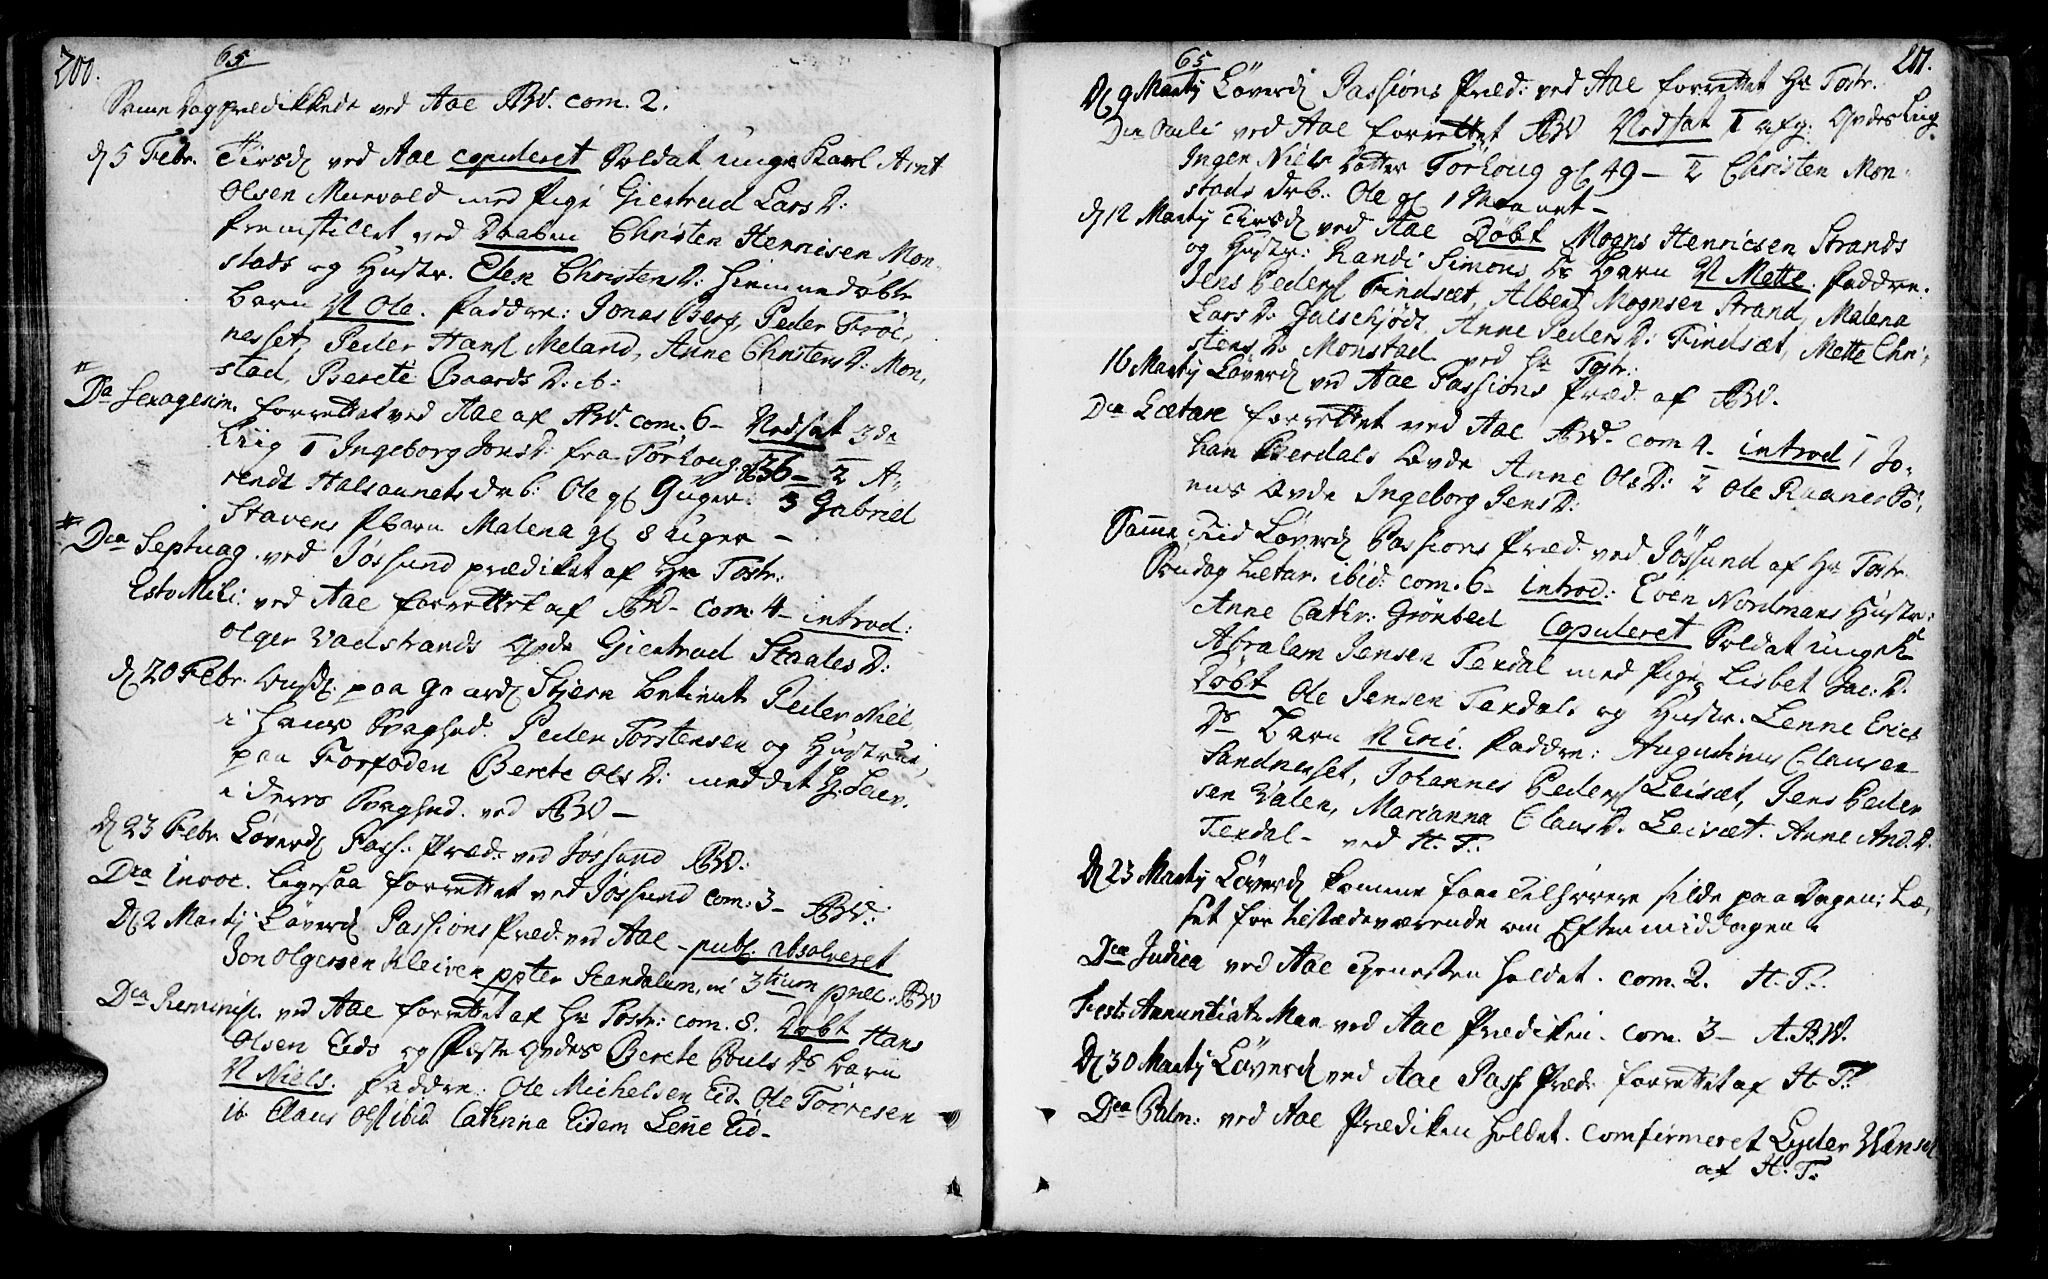 200.
65
Same Dag prædikkede ved Aae ABW. com. 2.
d 5 Febr. Tirsd ved Aae copuleret Soldat unge Karl Arnt
Olsen Murvold med Pige Giertrud Lars D:
fremstillet ved Daaben Christen Henrisen Mon-
stads og Hustr. Elen Christens D: hiemmedøbte
Barn N Ola. Faddre: Jonas Berg, Peder Frøe,
nesset, Peder Hans Meland, Anne Christens D: Mon,
stad, Berete Baards D: ib:
Dca Sexagesim. forrettet ved Aae af ABW. com. 6 - Nedsat 3de
Liig 1 Ingeborg Jons D: fra Torloug. gl 36 - 2 A-
rendt Halsaunets drb: Ole gl 9 Uger: 3 Gabriel
Stavens Pbarn Malena gl 8 Uger -
Dca Septuag. ved Jøssund prædiket af Hr Tostr:
Esto Mihi: ved Aae forrettet af ABW - com. 4 - introd:
Olger Vadstrands Qvde Giertrud Staales D:
d 20 Febr. Onsd. paa Gaard Stjern betient Peder Niel
i hans Svaghed. Peder Torstensen og Hustrue,
paa Forfoden Berete Ols D: med det H. Sacr.
i deres Svaghed. ved ABW -
d 23 Febr Løverd Pass: Præd: ved Jøssund ABW:
Dca Invoc. ligesaa forrettet ved Jøssund com: 3 - ABW:
d 2 Martj Løverd Passions Præd: ved Aae - publ. absolveret
Jon Olgersen Kleiven ppter Scandalum, in 3tium præc: ABW
Dca Reminisc. ved Aae forrettet af Hr Tostr: com. 8. Døbt Hans
Olsen Eids og Fæste Qvdes Berete Pouls Ds Barn
N Niels. Faddre: Ole Michelsen Eid. Ole Torresen
ib Claus Ols ibid Cathrina Eidem Lene Eid -
65
201.
d 9 Martj Løverd Passions Præd: ved Aae forrettet Hr Tostr.
Dca Oculi ved Aae forrettet ABW Nedsat 1 afg: Qvdes Liig
Inger Niels Datter Torloug gl 49 - 2 Christen Mon-
stads drb: Ole gl 1 Maanet -
d 12 Martj Tirsd ved Aae Døbt Mogns Henricsen Strands
og Hustr: Randi Simons Ds Barn N Mette. Faddre.
Jens Peders Findsæt, Albert Mognsen Strand, Malena
Lars D: Julsehjødt, Anne Peders D: Findsæt, Mette Chri-
stens D. Monstad ved Hr Tostr:
16 Martj Løverd ved Aae Passions Præd. af ABW.
Dca Lætare forrettet ved Aae ABW. com 4. introd 1 Jo-
han Berdals Qvde Anne Ols D: 2 Ole Raanes Fø,
ens Qvde Ingeborg Jens D:
Same Tid Løverd Passions Præd. ved Jøssund af Hr Tostr.
Søndag Lætar. ibid: com. 6 - introd: Even Nordmans Hustr:
Anne Cathr: Grønbech Copuleret Soldat unge K
Abralam Jensen Texdal med Pige Lisbet Jac: D.
Døbt Ole Jensen Texdal. og Hustr. Lenne Erics
Ds Barn N Eric. Faddre: Augustinus Clausen
Sandnesset, Johannes Peders Leisæt, Jens Peder
sen Valen, Marianna Claus D. Leisæt. Anne And. D.
Texdal - ved H. T.
d 23 Martj Løverd komme faae Tilhørere silde paa Dagen; læ,
set for tilstædeværende om Eftermiddagen.
Dca Judica ved Aae Tjenesten holdet. com. 2. H. T.
Fest. Annuntiat. Mar. ved Aae Prædiken. com. 3 - A.B.W.
d 30 Martj Løverd ved Aae Pass. Præd: forrettet af H. T.
Dca Palm: ved Aae Prædiken holdet. Comfirmeret Lyder
af H. T.